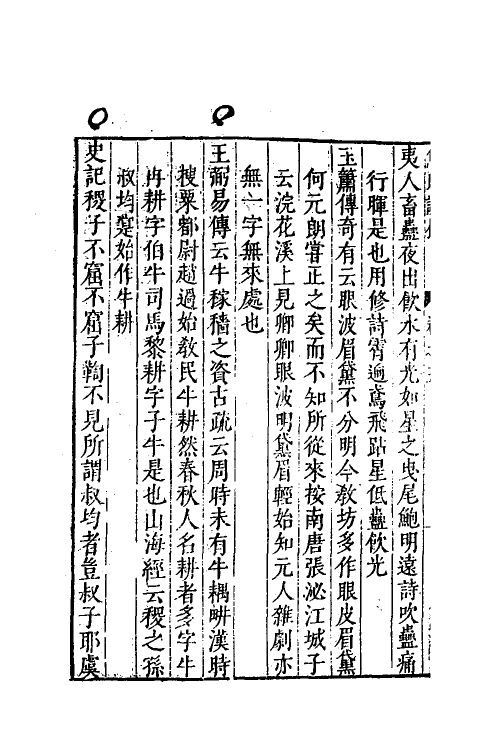 夷人畜蠱夜出飲水有光如星之曳尾鮑明遠詩吹蠱痛
行暉是也用修詩霄迥鳶飛跕星低蠱飲光
玉簫傳奇有云眼波眉黛不分明今教坊多作眼皮眉黛
何元朗嘗正之矣而不知所從來按南唐張泌江城子
云浣花溪上見卿卿眼波明黛眉輕始知元人雜劇亦
無一字無來處也
王弼易傳云牛稼穡之資古疏云周時未有牛耦畊漢時
搜粟都尉趙過始敎民牛耕然春秋人名耕者多字牛
冉耕字伯牛司馬黎耕字子牛是也山海經云稷之孫
叔均寔始作牛耕
史記稷子不窋不窋子鞠不見所謂叔均者豈叔子耶虞